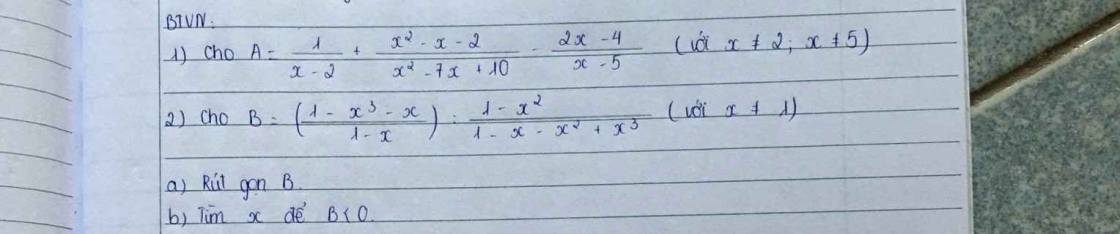 BTVN:
1) Cho A = \frac{1}{x-2} + \frac{x² - x - 2}{x² - 7x + 10} - \frac{2x - 4}{x - 5} (với x ≠ 2; x ≠ 5)
2) Cho B = (\frac{1 - x³ - x}{1 - x}) : \frac{1 - x²}{1 - x - x² + x³} (với x ≠ 1)
a) Rút gọn B.
b) Tìm x để B < 0.